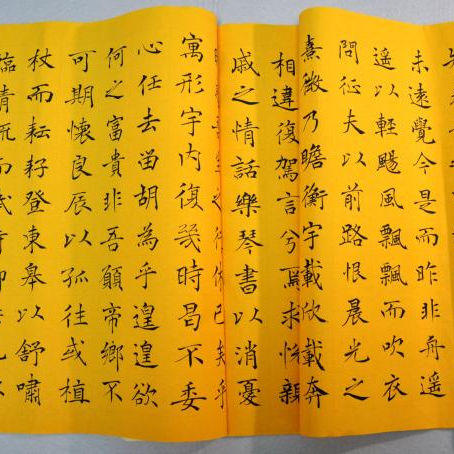 未遠覺今是而昨非舟遙
遙以輕颺風飄飄而吹衣
問征夫以前路恨晨光之
熹微乃瞻衡宇載欣載奔
相違復駕言兮焉求悅親
戚之情話樂琴書以消憂
已矣乎
寓形宇內復幾時曷不委
心任去留胡為乎遑遑欲
何之富貴非吾願帝鄉不
可期懷良辰以孤往或植
杖而耘耔登東皋以舒嘯
臨清流而賦詩